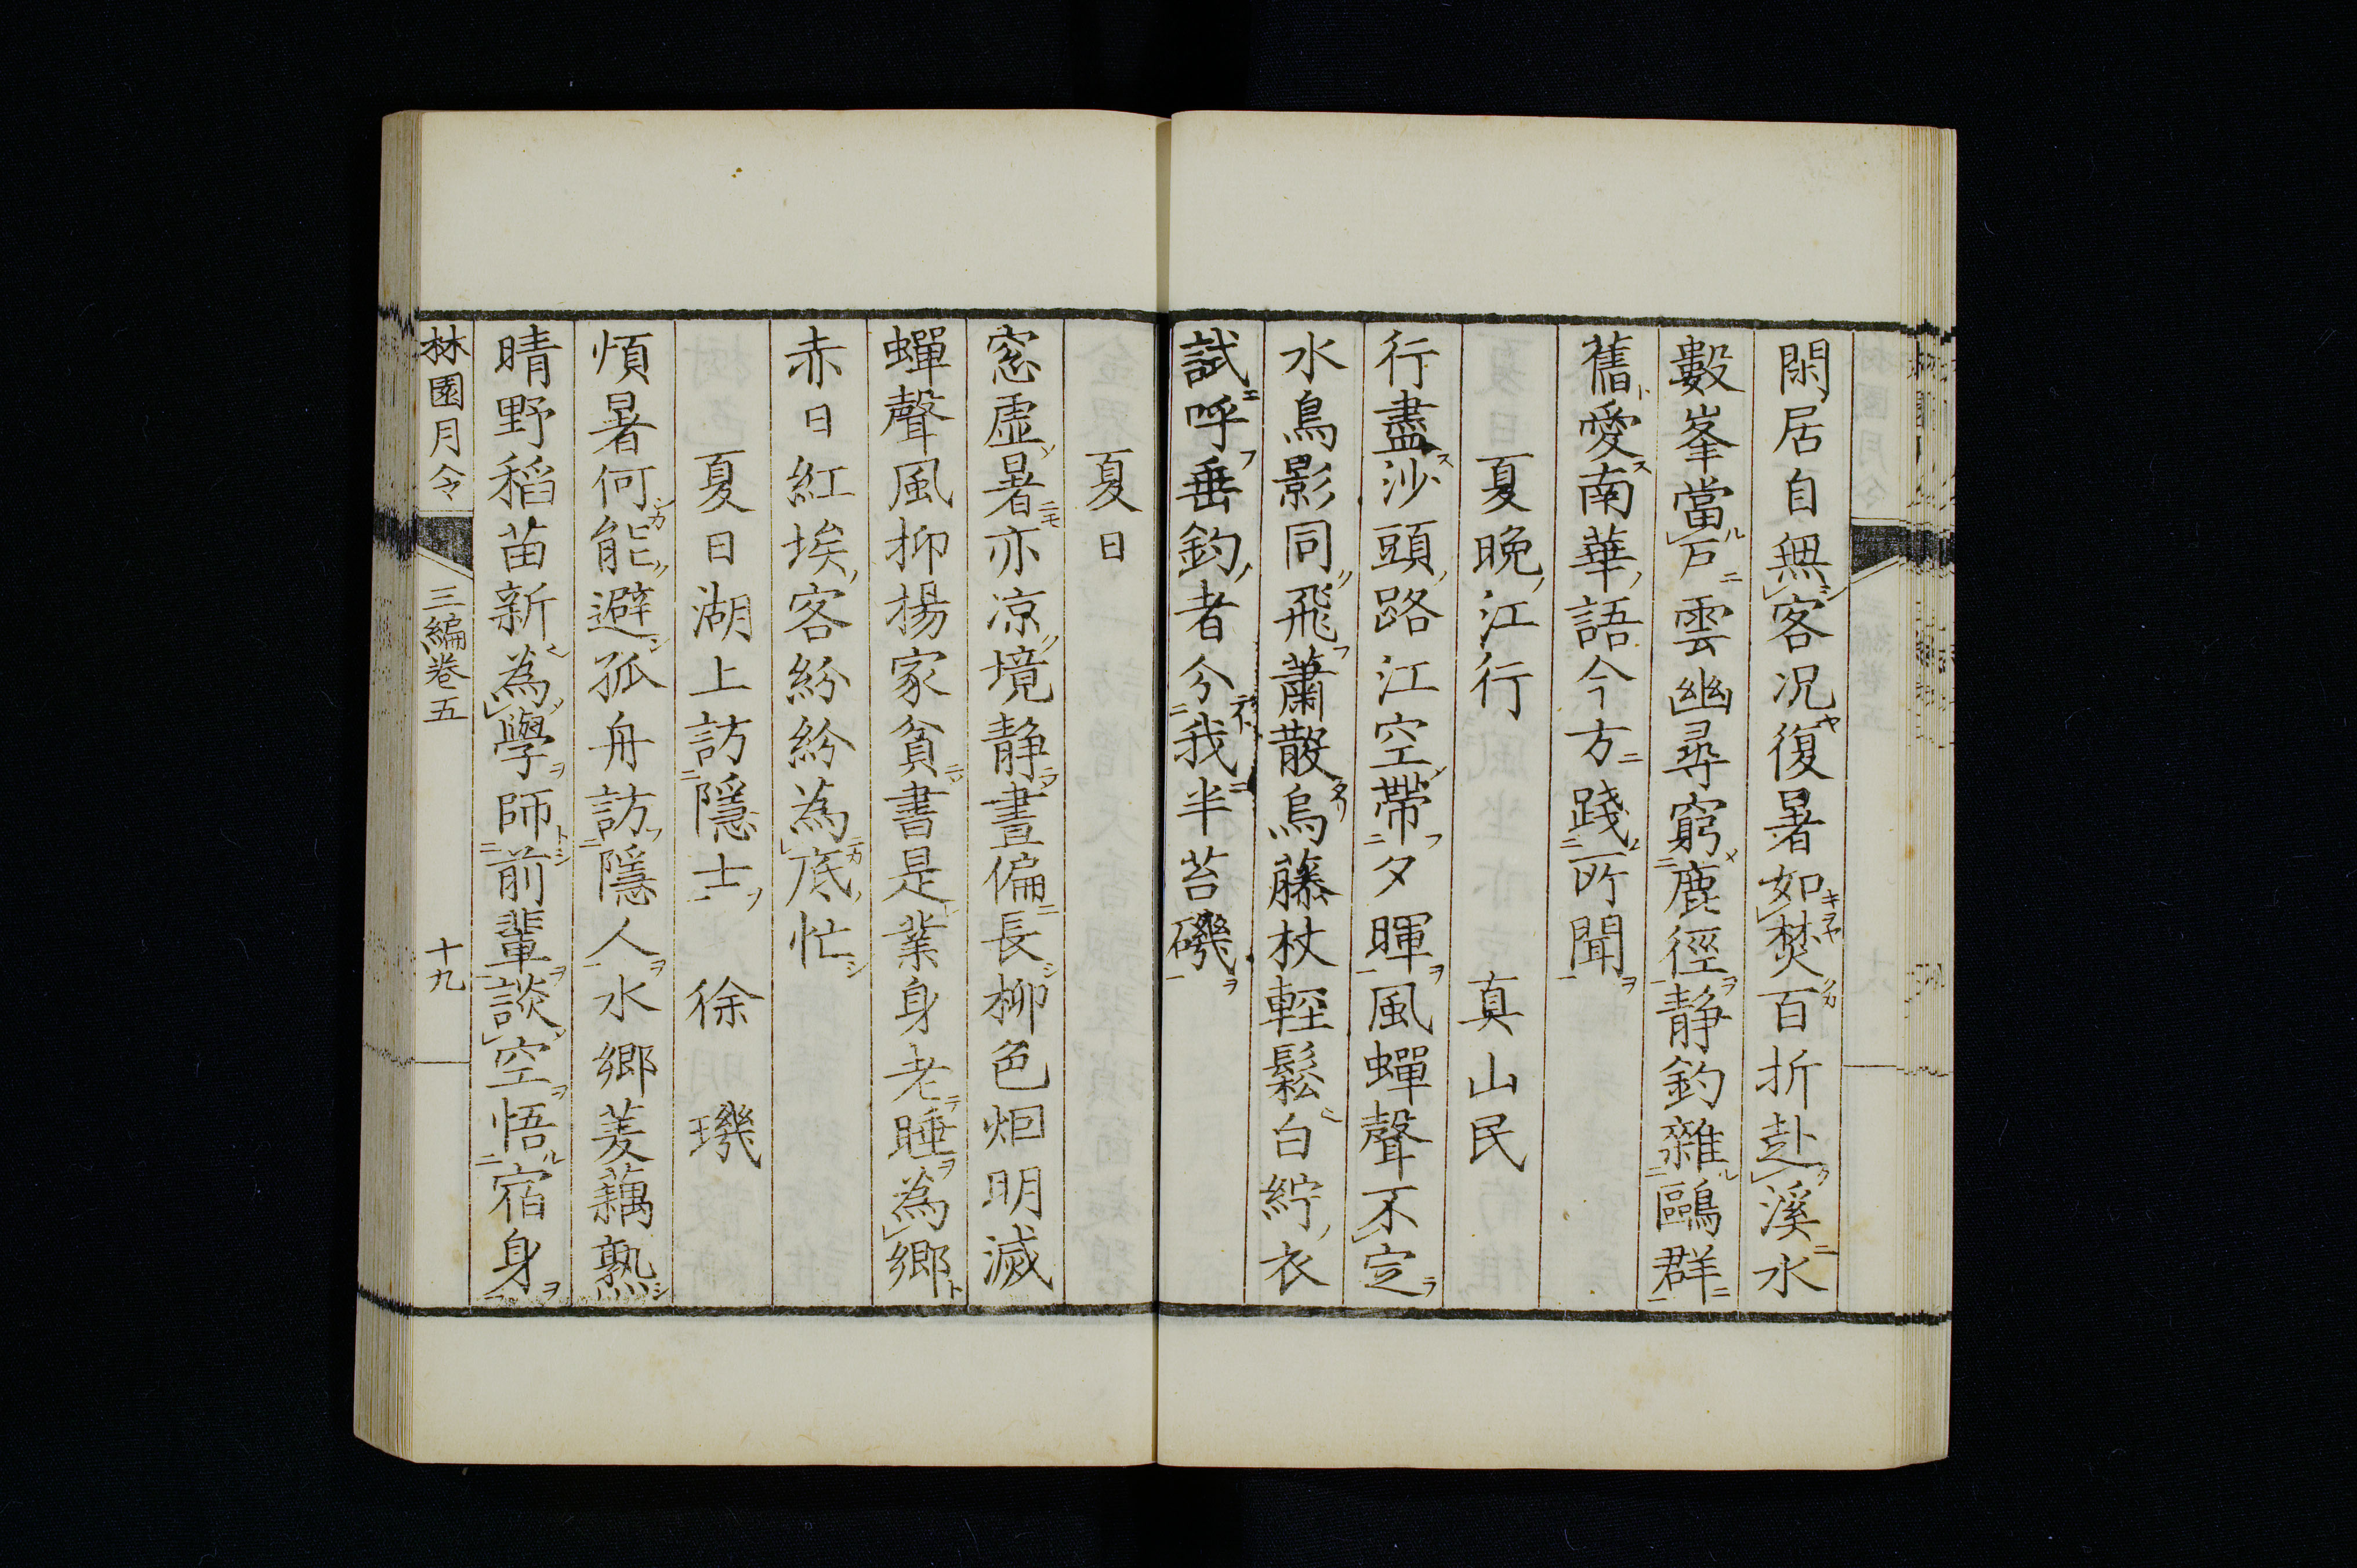 閑居自無客况復暑如焚百折赴溪水
數峯當戸雲幽尋窮鹿徑靜釣雜鷗群
舊愛南華語今方踐所聞
夏晩江行　真山民
行盡沙頭路江空帶夕暉風蟬聲不定
水鳥影同飛蕭散烏藤杖輕鬆白紵衣
試呼垂釣者分我半苔磯
夏日
窓虚暑亦凉境靜晝偏長柳色炬明滅
蟬聲風抑揚家貧書是業身老睡為郷
赤日紅埃客紛紛為底忙
夏日湖上訪隱士　徐璣
煩暑何能避孤舟訪隱人水郷菱藕熟
晴野稻苗新為學師前輩談空悟宿身
林園月令　三編巻五　十九